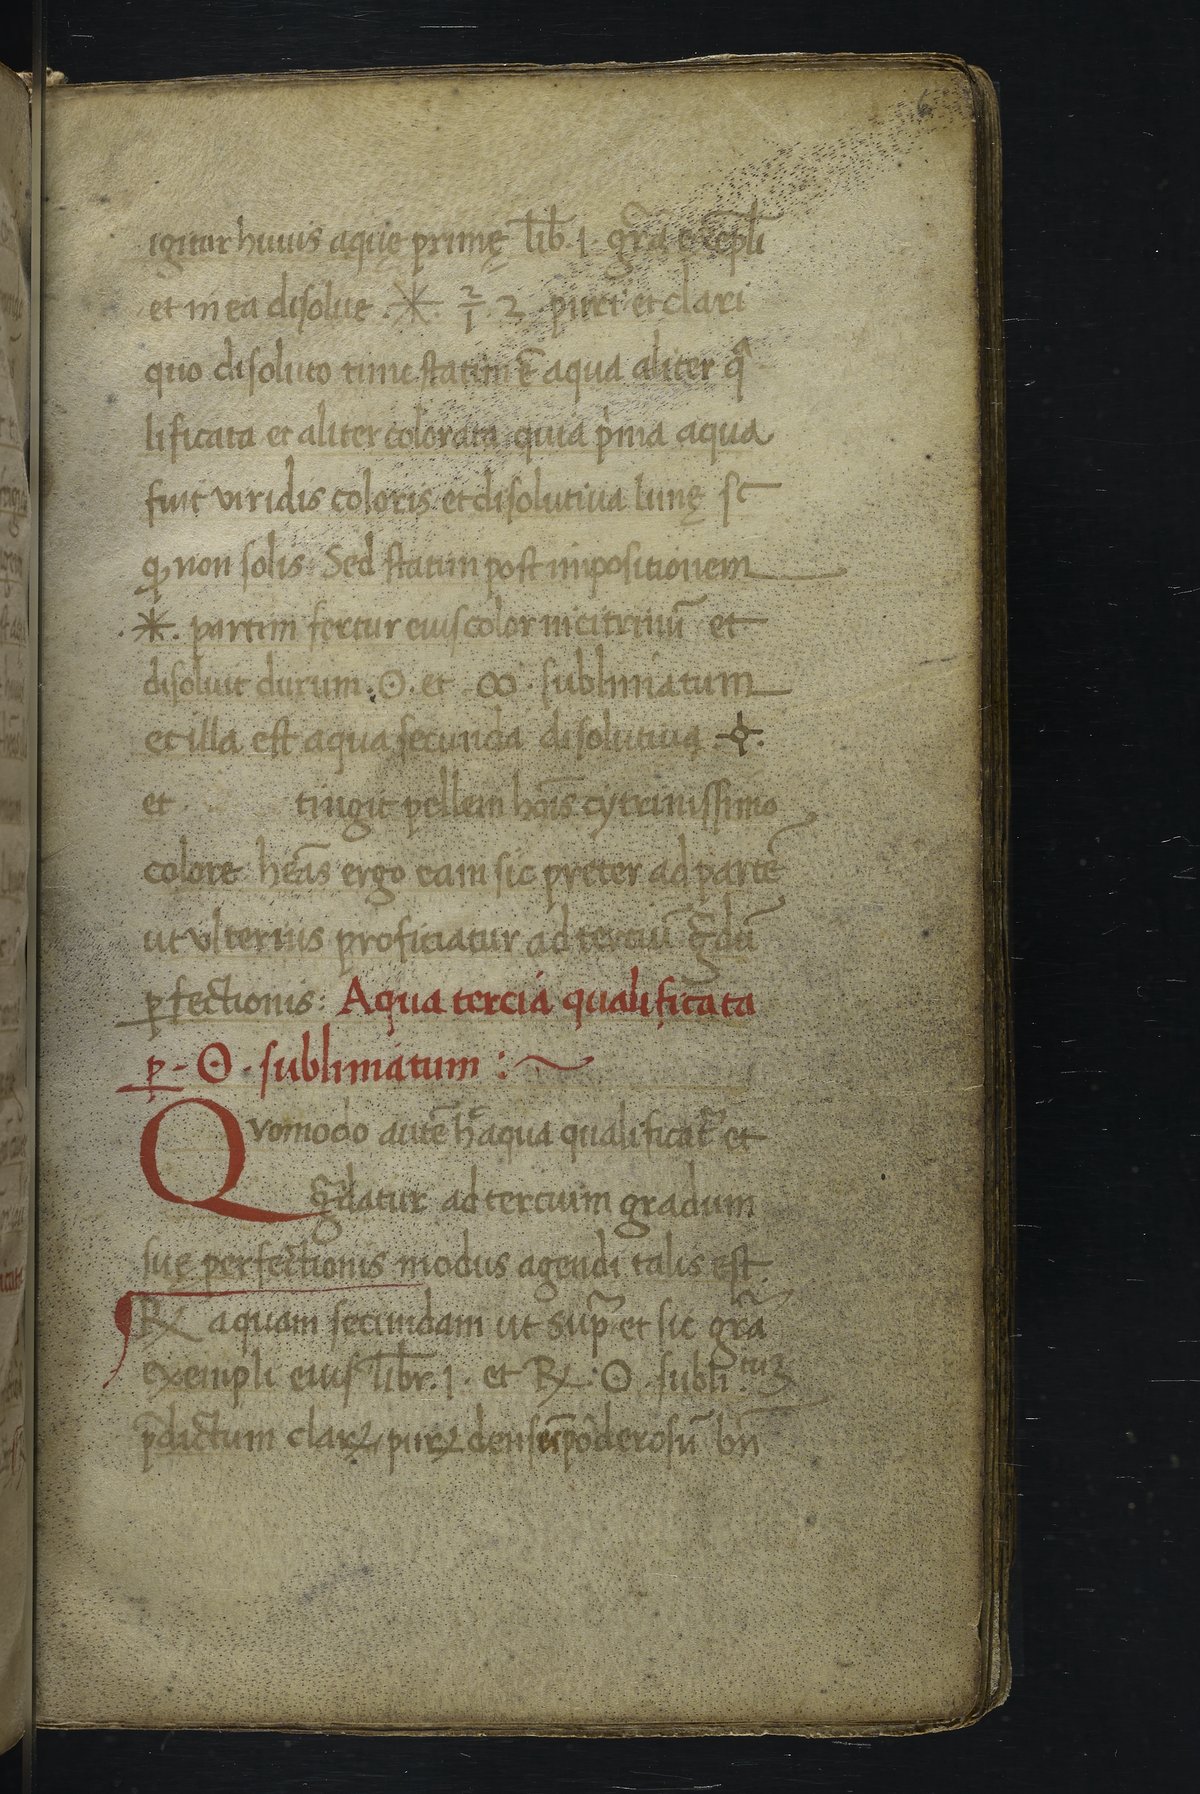 6
igitur huius aquę primę lib̄. 1. gr̄a exēpli
et in ea disolue .✳. 2 puri et clari
quo disoluto tunc statim ē aqua aliter q̄
lificata et aliter colorata quia p̄ma aqua
fuit viridis coloris et disolutiua lunę sc
non solis. Sed statim post inpositionem
.✳. partim fertur eius color in citrinū et
disoluit durum .☉. et .∞. sublimatum
et illa est aqua secunda disolutiua
et tingit pellem hōīs cytrinissimo
colore heās ergo eam sic preter ad partē
ut vlterius proficiatur ad terciū gr̄dū
ꝑfectionis: Aqua tercia qualificata
ꝑ .☉. sublimatum :~
Quomodo autē h̄ aqua qualificat᷑ et
gr̄datur ad tercium gradum
suę perfectionis modus agendi talis est
℞ aquam secundam ut sup̄ et sic gr̄a
exempli eius lib̄r. 1. et ℞ .☉. subli.tuꝫ
p̄dictum claꝝ, puꝝ densū pōderosū bn̄